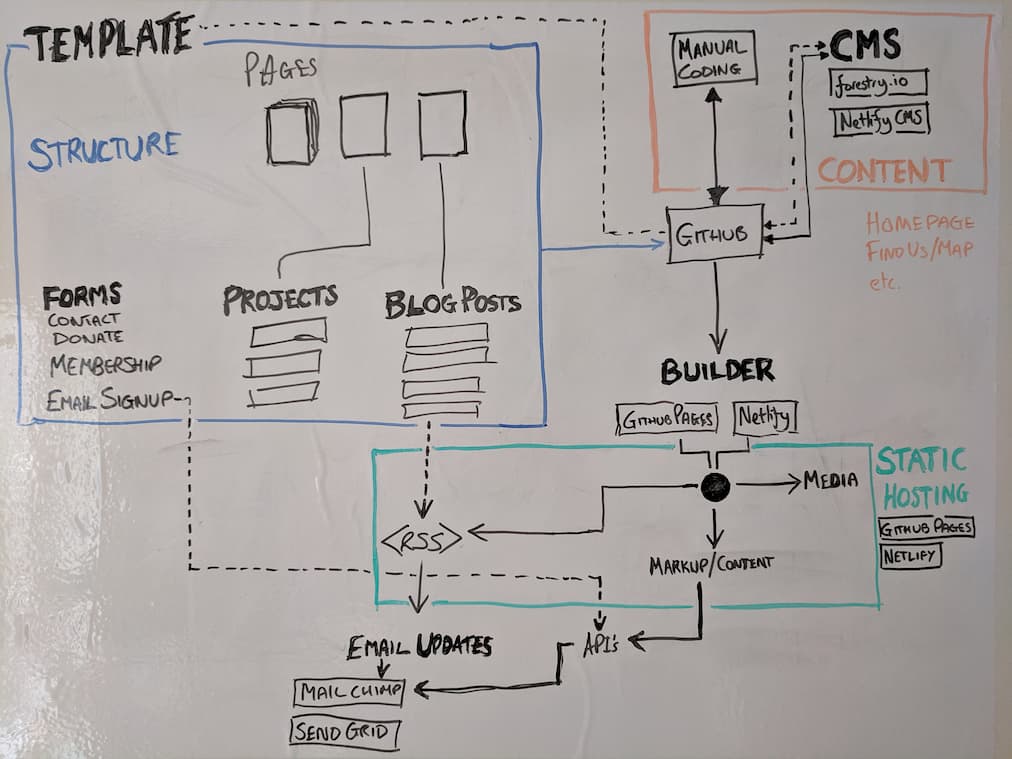 TEMPLATE
PAGES
STRUCTURE
FORMS
CONTACT
DONATE
MEMBERSHIP
EMAIL SIGNUP
PROJECTS
BLOG POSTS
MANUAL
CODING
CMS
forestry.io
Netlify CMS
CONTENT
GITHUB
HOMEPAGE
FIND US/MAP
etc.
BUILDER
GITHUB PAGES
Netlify
STATIC
HOSTING
GITHUB PAGES
NETLIFY
MEDIA
<RSS>
MARKUP/CONTENT
EMAIL UPDATES
API's
MAIL CHIMP
SEND GRID